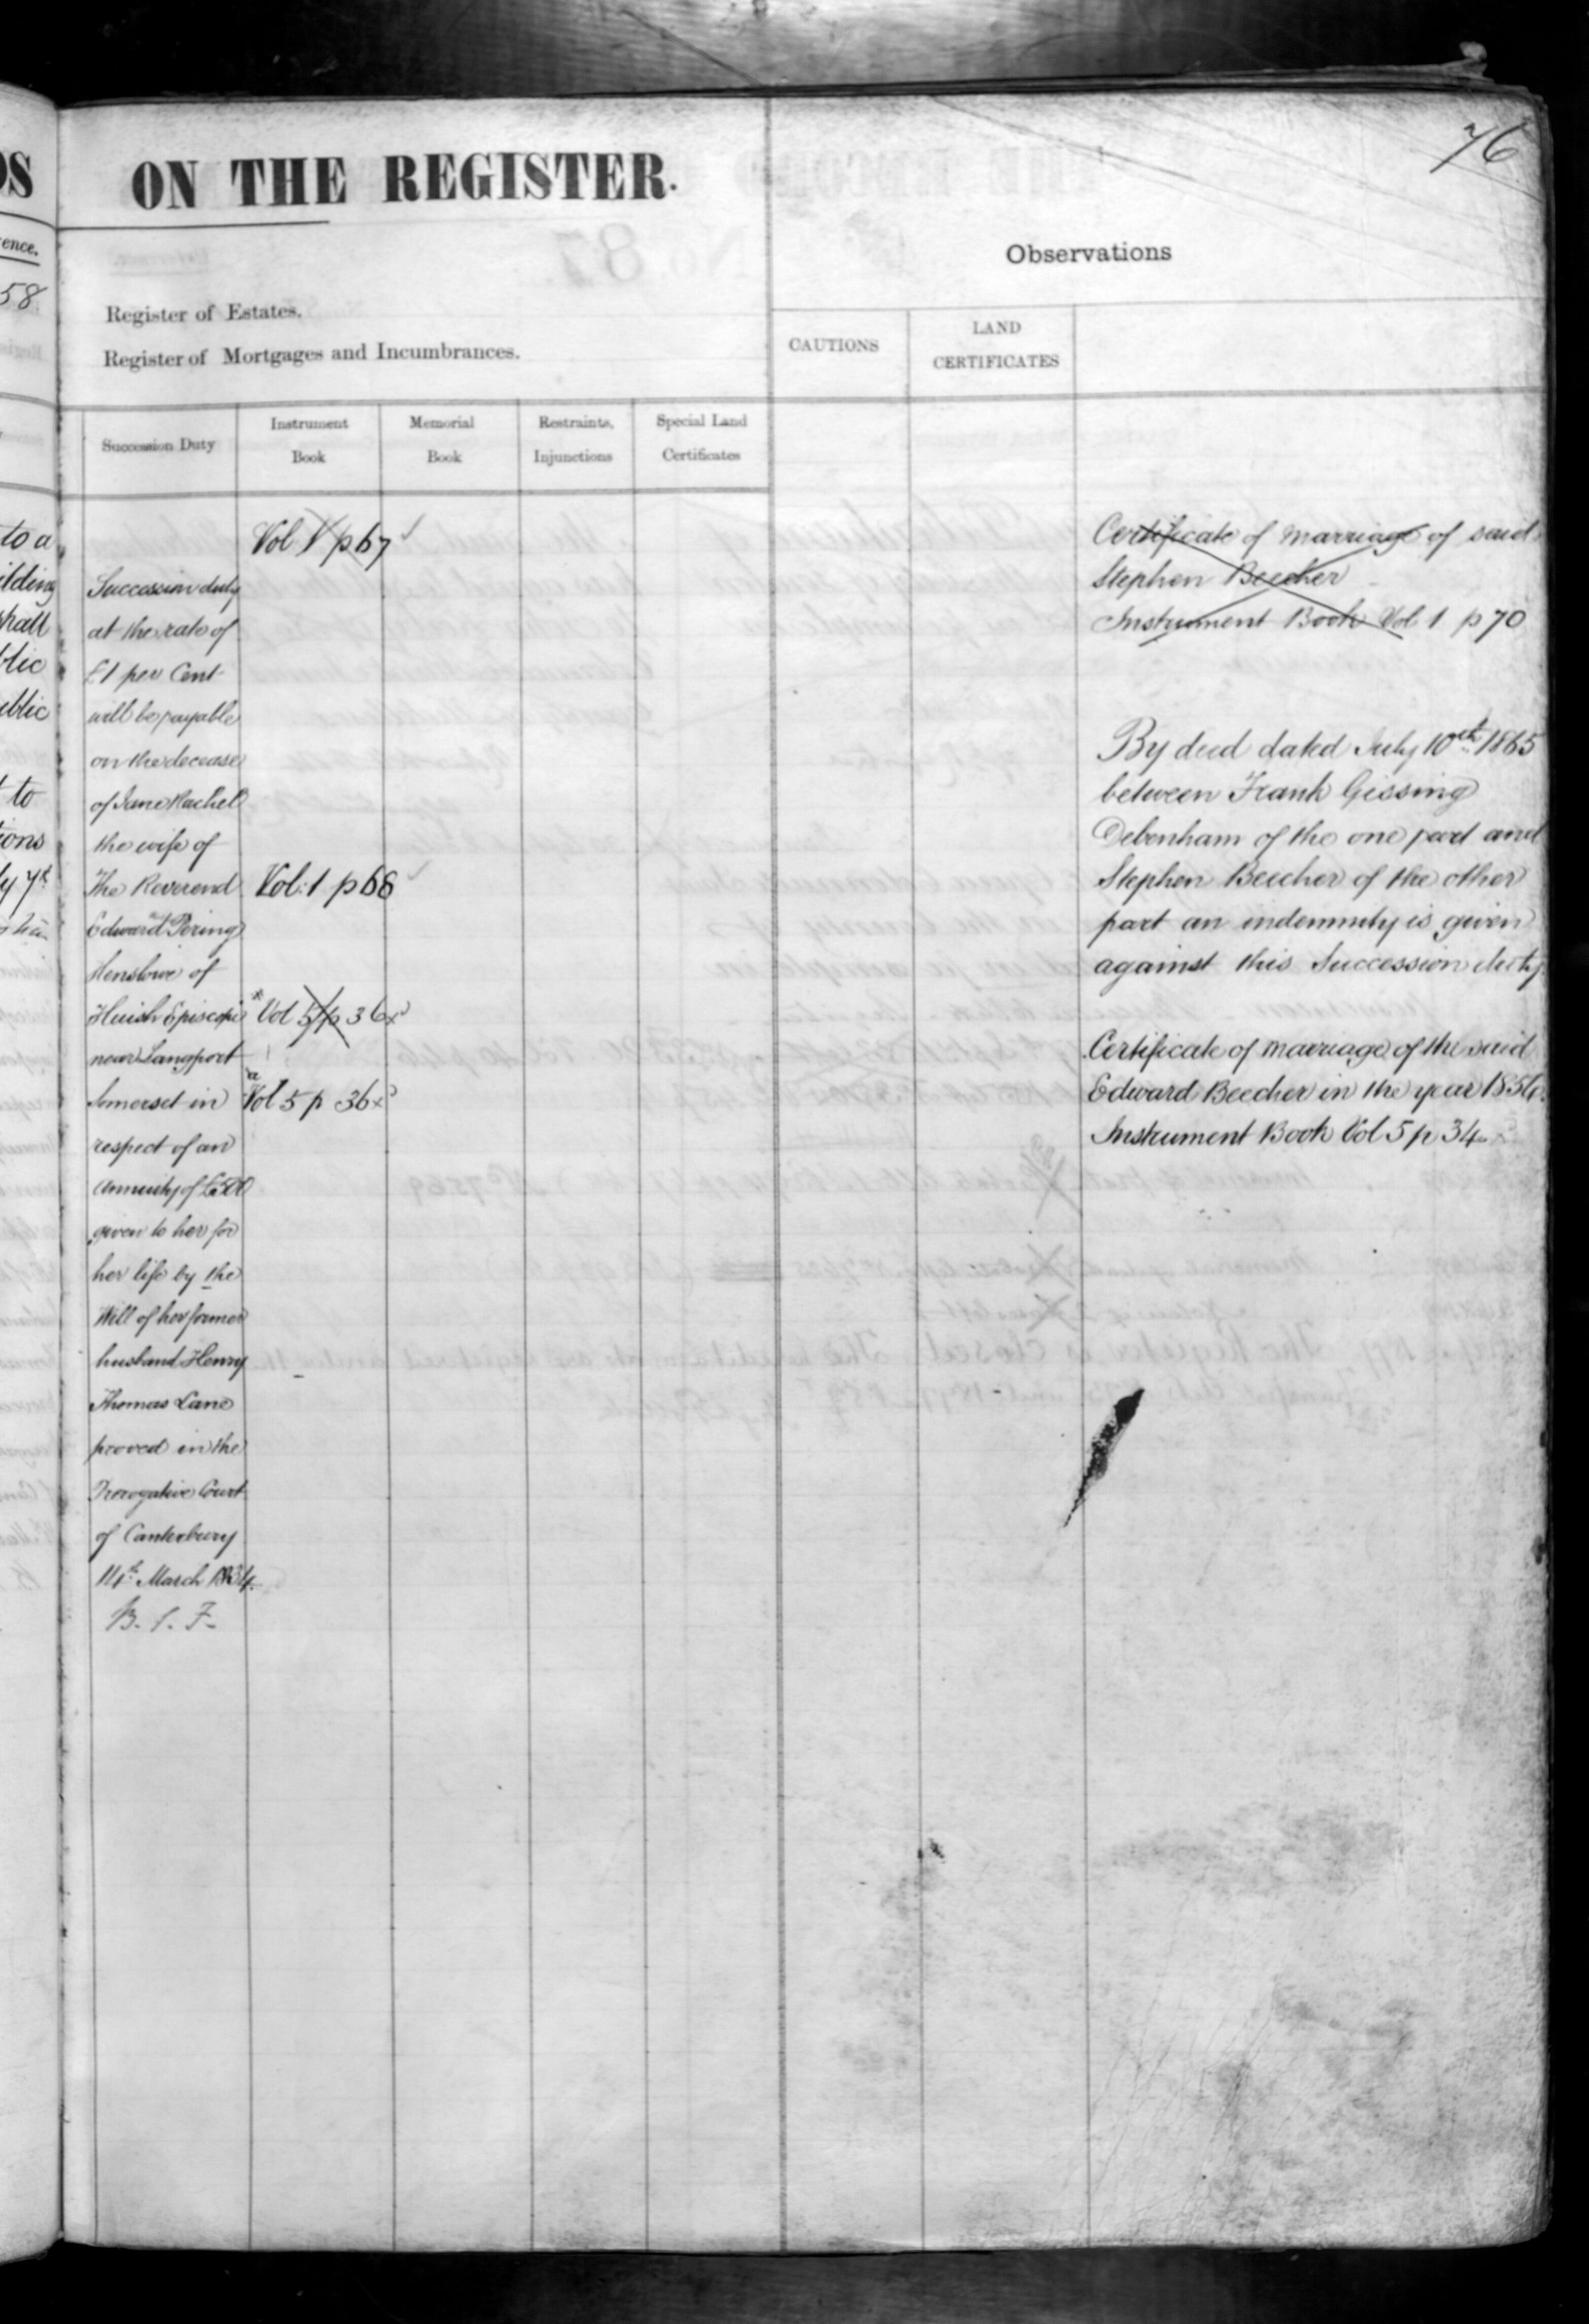 76
ON THE REGISTER.
Observations
Register of Estates.
Register of Mortgages and Incumbrances.
CAUTIONS
LAND
CERTIFICATES
Succession Duty
Instrument
Book
Memorial
Book
Restraints,
Injunctions
Special Land
Certificates
Succession duty
at the rate of
£1 per Cent
will be payable
on the decease
of Jane Rachel
the wife of
The Reverend
Edward Pering
Henslowe of
Huish Episcopi
near Langport
Somerset in
respect of an
Annuity of £500
given to her for
her life by the
Will of her former
husband Henry
Thomas Lane
proved in the
Prerogative Court
of Canterbury
14th March 1834.
Vol 1 p 67
Vol: 1 p 68
Vol 5 p 36
Vol 5 p 36
Certificate of Marriage of said
Stephen Beecher
Instrument Book Vol 1 p 70
By deed dated July 10th 1865
between Frank Gissing
Debenham of the one part and
Stephen Beecher of the other
part an indemnity is given
against this Succession duty
Certificate of marriage of the said
Edward Beecher in the year 1854.
Instrument Book Vol 5 p 34
ence.
58
to a
ilding
shall
blic
ublic
to
ions